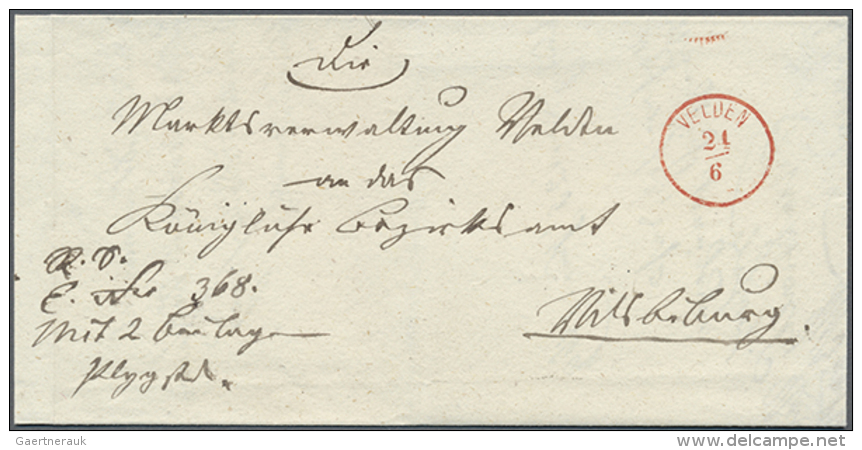 Die
Marktsverwaltung Velden
an das
Königliche Bezirksamt
Vilsbiburg.
R. S.
E. Nro 368.
Mit 2 Beilagen
VELDEN
21
6
Gaertnerauk
www.delcampe.net